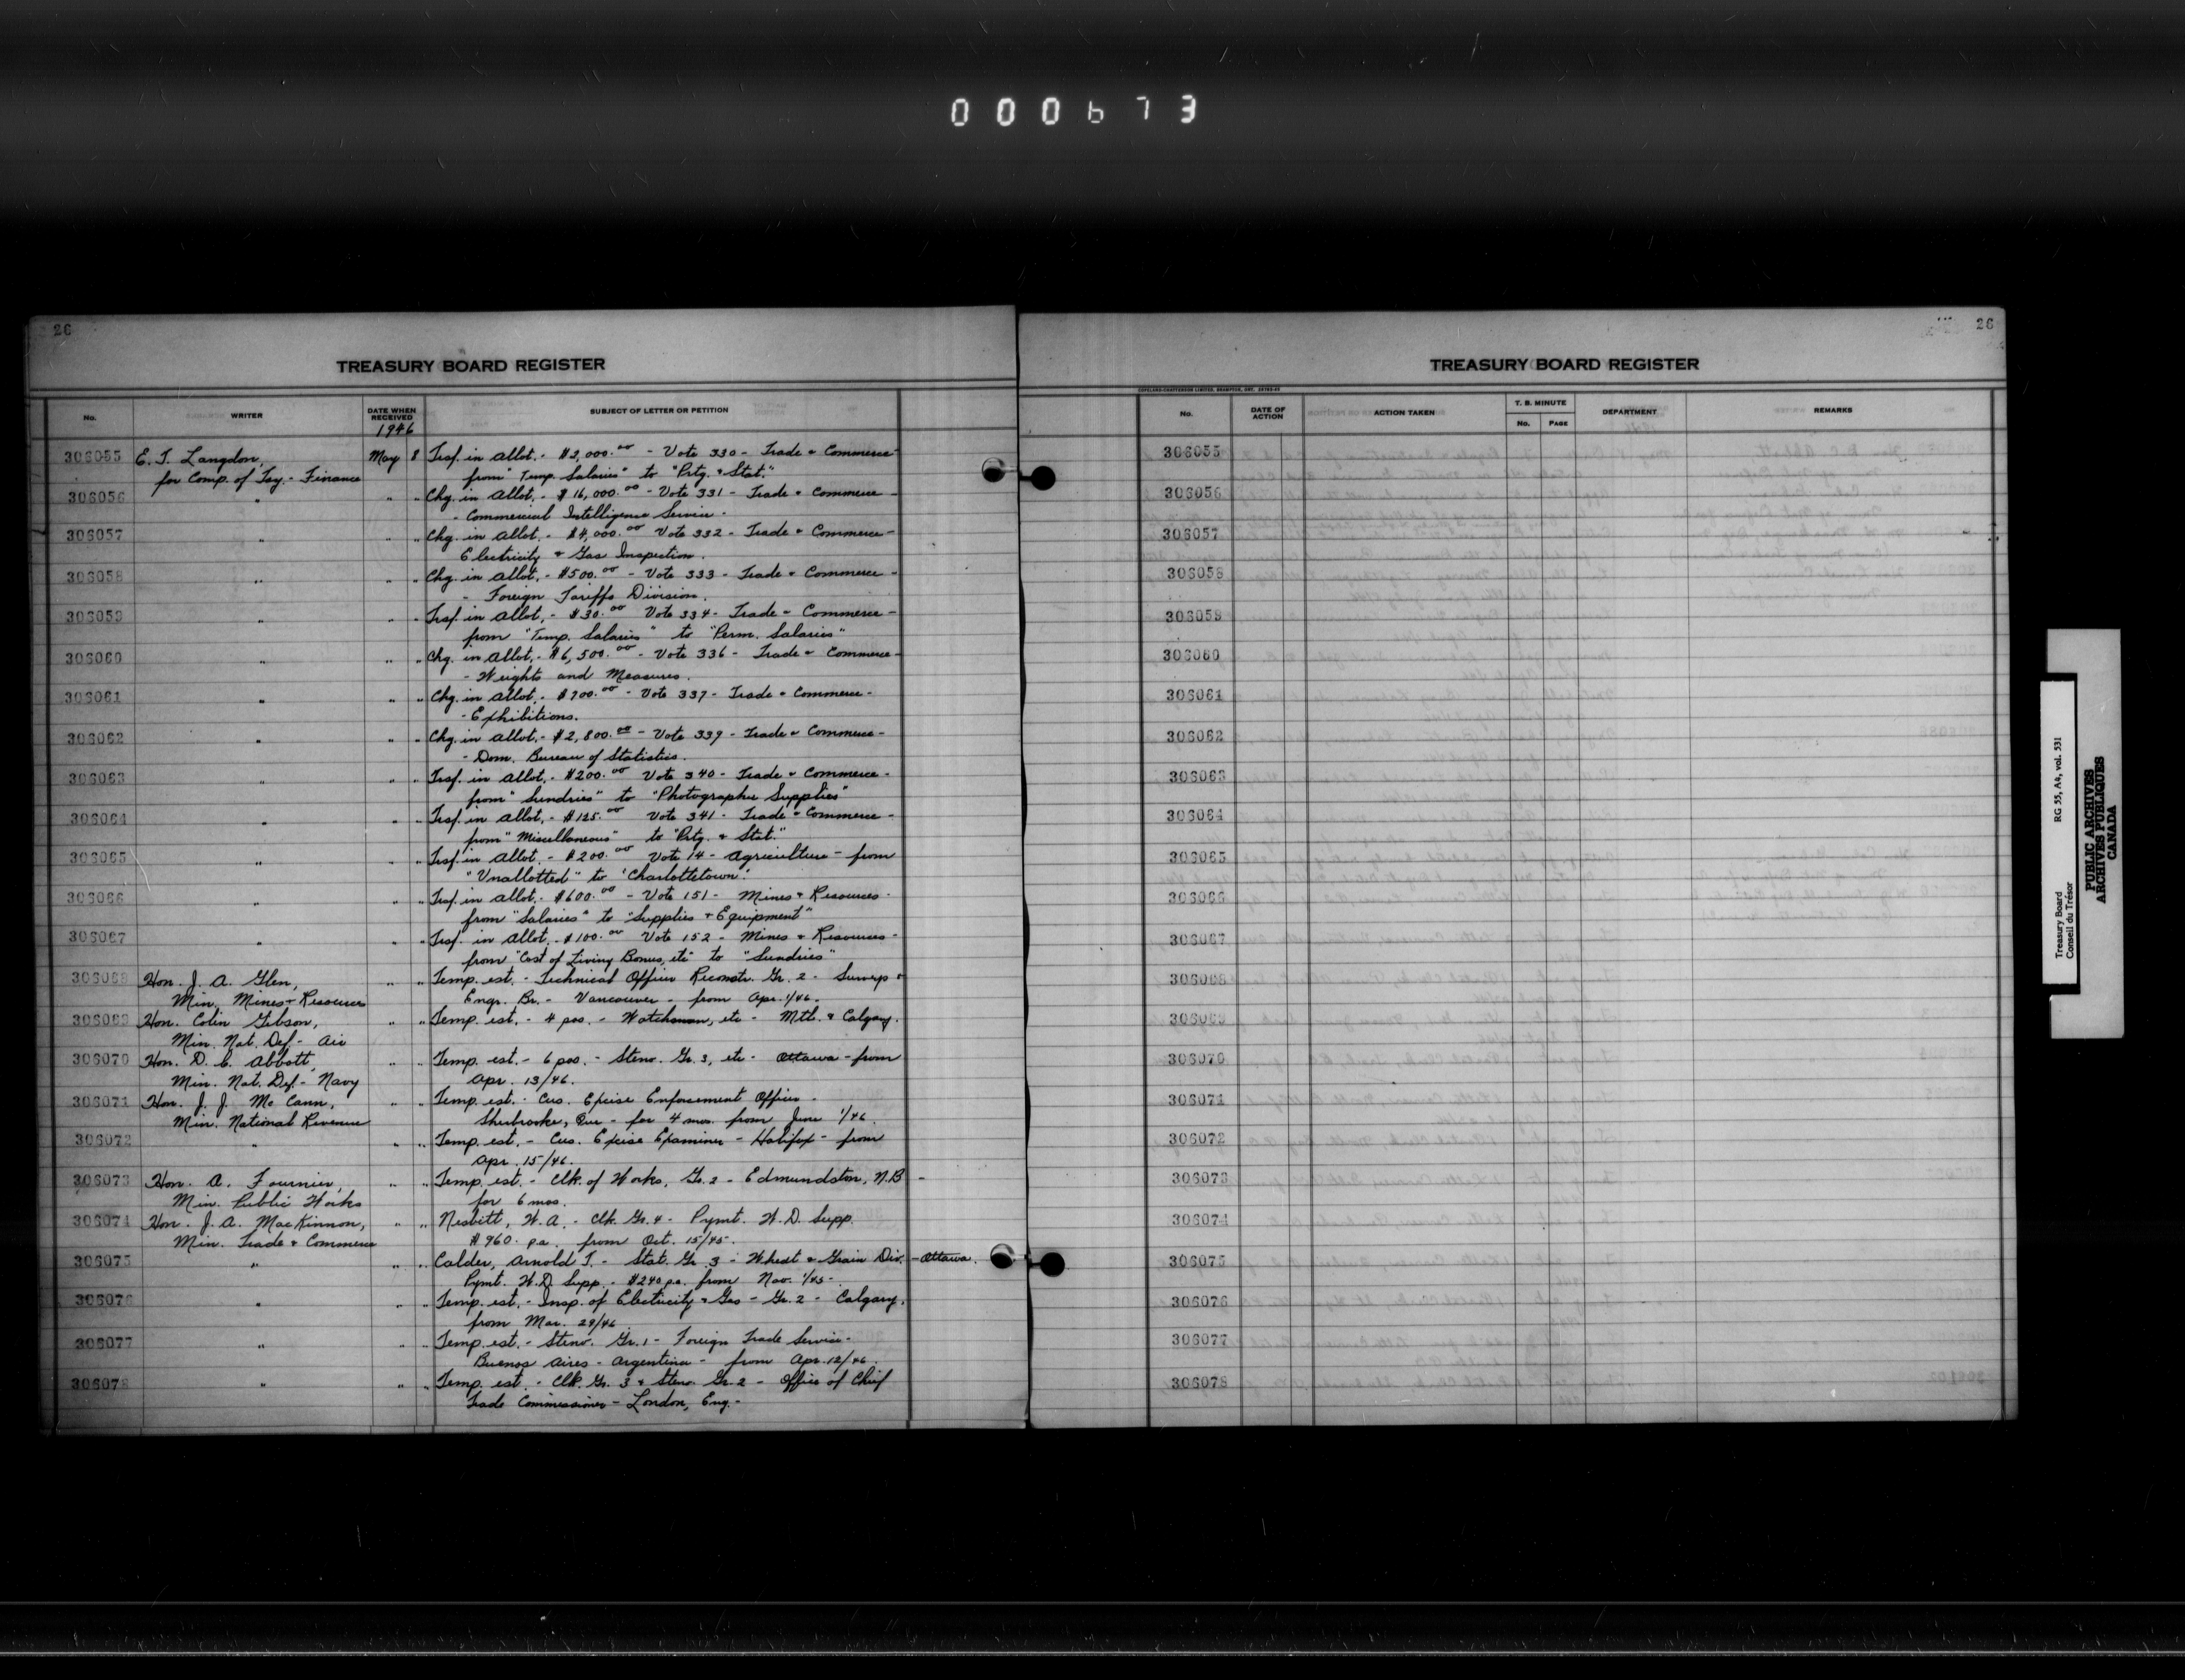 000673
26
TREASURY BOARD REGISTER
No. WRITER DATE WHEN RECEIVED SUBJECT OF LETTER OR PETITION
1946
306055 E. T. Langdon, May 8 Trsf. in Allot. - $3,000.00 - Vote 330 - Trade & Commerce
for Comp. of Tsy. - Finance from "Temp. Salaries" to "Prtg. & Stat."
306056 " " " Chg. in Allot. - $16,000.00 - Vote 331 - Trade & Commerce -
- Commercial Intelligence Service.
306057 " " " Chg. in Allot. - $4,000.00 Vote 332 - Trade & Commerce -
Electricity & Gas Inspection.
306058 " " " Chg. in Allot. - $500.00 - Vote 333 - Trade & Commerce -
- Foreign Tariffs Division.
306059 " " " Trsf. in Allot. - $30.00 Vote 334 - Trade & Commerce -
from "Temp. Salaries" to "Perm. Salaries"
306060 " " " Chg. in Allot. - $6,500.00 - Vote 336 - Trade & Commerce -
- Weights and Measures.
306061 " " " Chg. in Allot. - $700.00 - Vote 337 - Trade & Commerce -
- Exhibitions.
306062 " " " Chg. in Allot. - $2,800.00 - Vote 339 - Trade & Commerce -
- Dom. Bureau of Statistics.
306063 " " " Trsf. in Allot. - $200.00 Vote 340 - Trade & Commerce -
from "Sundries" to "Photographic Supplies"
306064 " " " Trsf. in Allot. - $125.00 Vote 341 - Trade & Commerce -
from "Miscellaneous" to "Prtg. & Stat."
306065 " " " Trsf. in Allot. - $200.00 Vote 14 - Agriculture - from
"Unallotted" to "Charlottetown".
306066 " " " Trsf. in Allot. - $600.00 - Vote 151 - Mines & Resources -
from "Salaries" to "Supplies & Equipment"
306067 " " " Trsf. in Allot. - $100.00 Vote 152 - Mines & Resources -
from "Cost of Living Bonus, etc" to "Sundries"
306068 Hon. J. A. Glen, " " Temp. est. - Technical Officer Reconstr. Gr. 2 - Surveys &
Min. Mines & Resources Engr. Br. - Vancouver - from Apr. 1/46.
306069 Hon. Colin Gibson, " " Temp. est. - 4 pos. - Watchman, etc - Mtl. & Calgary.
Min. Nat. Def - Air
306070 Hon. D. C. Abbott, " " Temp. est. - 6 pos. - Steno. Gr. 3, etc - Ottawa - from
Min. Nat. Def. - Navy Apr. 13/46.
306071 Hon. J. J. McCann, " " Temp. est. - Cus. Excise Enforcement Officer -
Min. National Revenue Sherbrooke, Que - for 4 mos. from June 1/46.
306072 " " " Temp. est. - Cus. Excise Examiner - Halifax - from
Apr. 15/46.
306073 Hon. A. Fournier, " " Temp. est. - Clk. of Works, Gr. 2 - Edmundston, N.B -
Min. Public Works for 6 mos.
306074 Hon. J. A. MacKinnon, " " Nesbitt, W. A. - Clk. Gr. 4 - Pymt. W. D. Supp.
Min. Trade & Commerce $960. p.a. from Oct. 15/45.
306075 " " " Calder, Arnold T. - Stat. Gr. 3 - Wheat & Grain Div. - Ottawa.
Pymt. W. D. Supp. - $240 p.a. from Nov. 1/45 -
306076 " " " Temp. est. - Insp. of Electricity & Gas - Gr. 2 - Calgary,
from Mar. 29/46
306077 " " " Temp. est. - Steno. Gr. 1 - Foreign Trade Service -
Buenos Aires - Argentina - from Apr. 12/46.
306078 " " " Temp. est. - Clk. Gr. 3 & Steno. Gr. 2 - Office of Chief
Trade Commissioner - London, Eng. -
26
TREASURY BOARD REGISTER
COPELAND-CHATTERSON LIMITED, BRAMPTON, ONT.
No. DATE OF ACTION ACTION TAKEN T. B. MINUTE No. PAGE DEPARTMENT REMARKS
306055
306056
306057
306058
306059
306060
306061
306062
306063
306064
306065
306066
306067
306068
306069
306070
306071
306072
306073
306074
306075
306076
306077
306078
Treasury Board RG 55, A4, vol. 531
Conseil du Trésor
PUBLIC ARCHIVES
ARCHIVES PUBLIQUES
CANADA